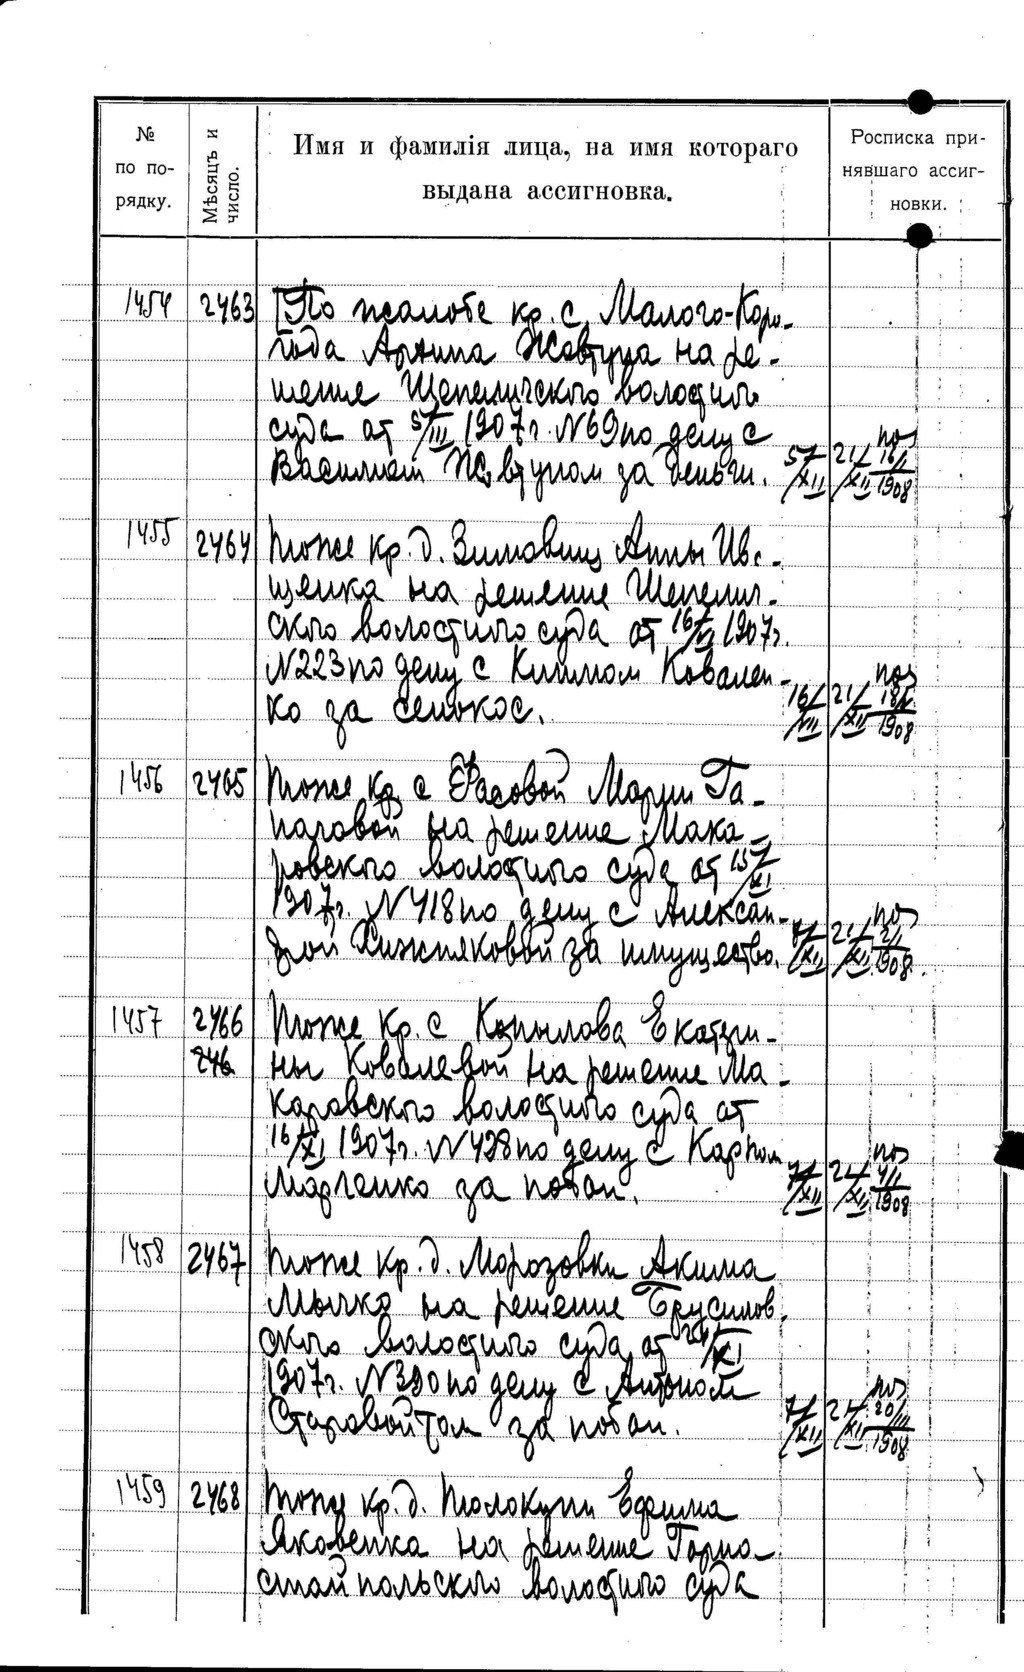 № по по-рядку.
Мѣсяцъ и число.
Имя и фамилія лица, на имя котораго
выдана ассигновка.
Росписка при-
нявшаго ассиг-
новки.
1454 2463 По жалобе кр. с. Малого-Коро-
года Архипа Жовтуна на ре-
шение Шепеличского волостного
суда от 5/III 1907 г. N69 по делу с
Василием Жовтуном за деньги. 5/XII 21/XII 16/I 1908
1455 2464 Тоже кр. д. Зимовищ Анны Ива-
щенко на решение Шепелич-
ского волостного суда от 16/VI 1907 г.
N223 по делу с Климом Ковален-
ко за сенокос. 16/VII 21/XII 1908
1456 2465 Тоже кр. с Марии Га-
на решение Мака-
ровского волостного суда от 15/XI
1907 г. N418 по делу с Алексан-
дрой Хижняковой за имущество. 21/XII 2/I 1908
1457 2466 Тоже кр. с Копылова Екатери-
246
ны Ковалевой на решение Ма-
каровского волостного суда от
16/XI 1907 г. N428 по делу с Карпом
Марченко за побои. 7/XII 21/XII 4/I 1908
1458 2467 Тоже кр. д. Морозовки Акима
Мычко на решение Брусилов-
ского волостного суда от 24/XI
1907 г. N390 по делу с Антоном
Старовойтом за побои. 7/XII 21/XII 20/III 1908
1459 2468 Тоже кр. д. Толокуни Ефима
Яковенка на решение Горно-
стайпольского волостного суда